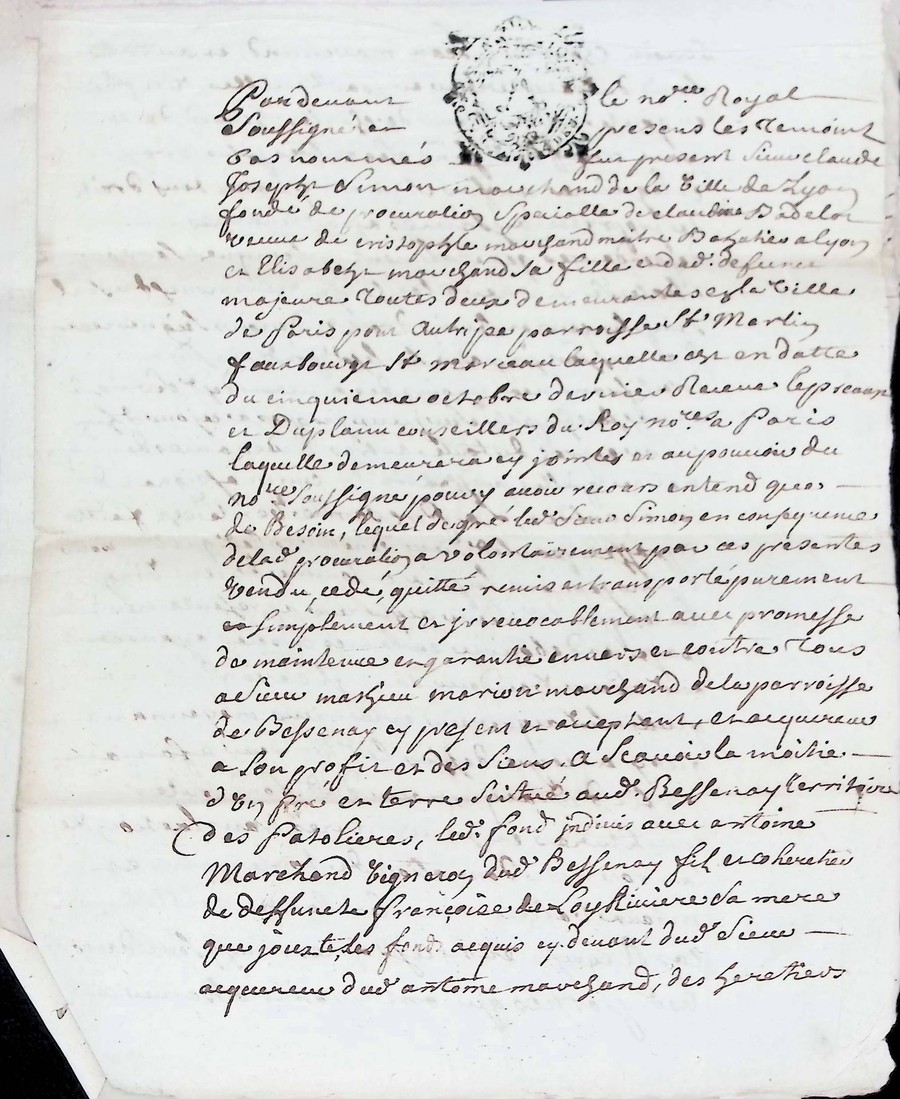 Pardevant le no.re Royal
Soussigné et presens les temoins
bas nommés fut present Sieur claude
Joseph Simon marchand de la Ville de Lyon
fondé de procuration Specialle de claudine Badelot
veuve de cristophle marchand maitre Batelier a Lyon
et Elisabeth marchand sa fille et dud. defunt
majeure toutes deux demeurantes en la Ville
de Paris parroisse St Martin
fauxbourg St marceau laquelle est en datte
du cinquieme octobre dernier Receue
et Duplain conseillers du Roy no.res a Paris
laquelle demeurera cy jointes et au pouvoir du
no.re Soussigné pour y avoir recours entend que
de Besoin, lequel de gré led. Sieur Simon en consequence
de lad. procuration a volontairement par ces presentes
vendu, cedé, quitté remis et transporté purement
et simplement et jrrevocablement avec promesse
de maintenue et garantie envers et contre tous
a Sieur mathieu marion marchand de la parroisse
de Bessenay cy present et acceptant, et acquereur
a son profit et des siens. a Scavoir la moitie
d'un pré et terre scitué aud. Bessenay territoire
des Patolieres, led. fond jndivis avec antoine
Marchand Vigneron dud. Bessenay fils et coheretier
de deffuncte françoise de Loy Riviere sa mere
que jouste, les fonds acquis cy devant dud. Sieur
acquereur dud. antoine marchand, des heretiers